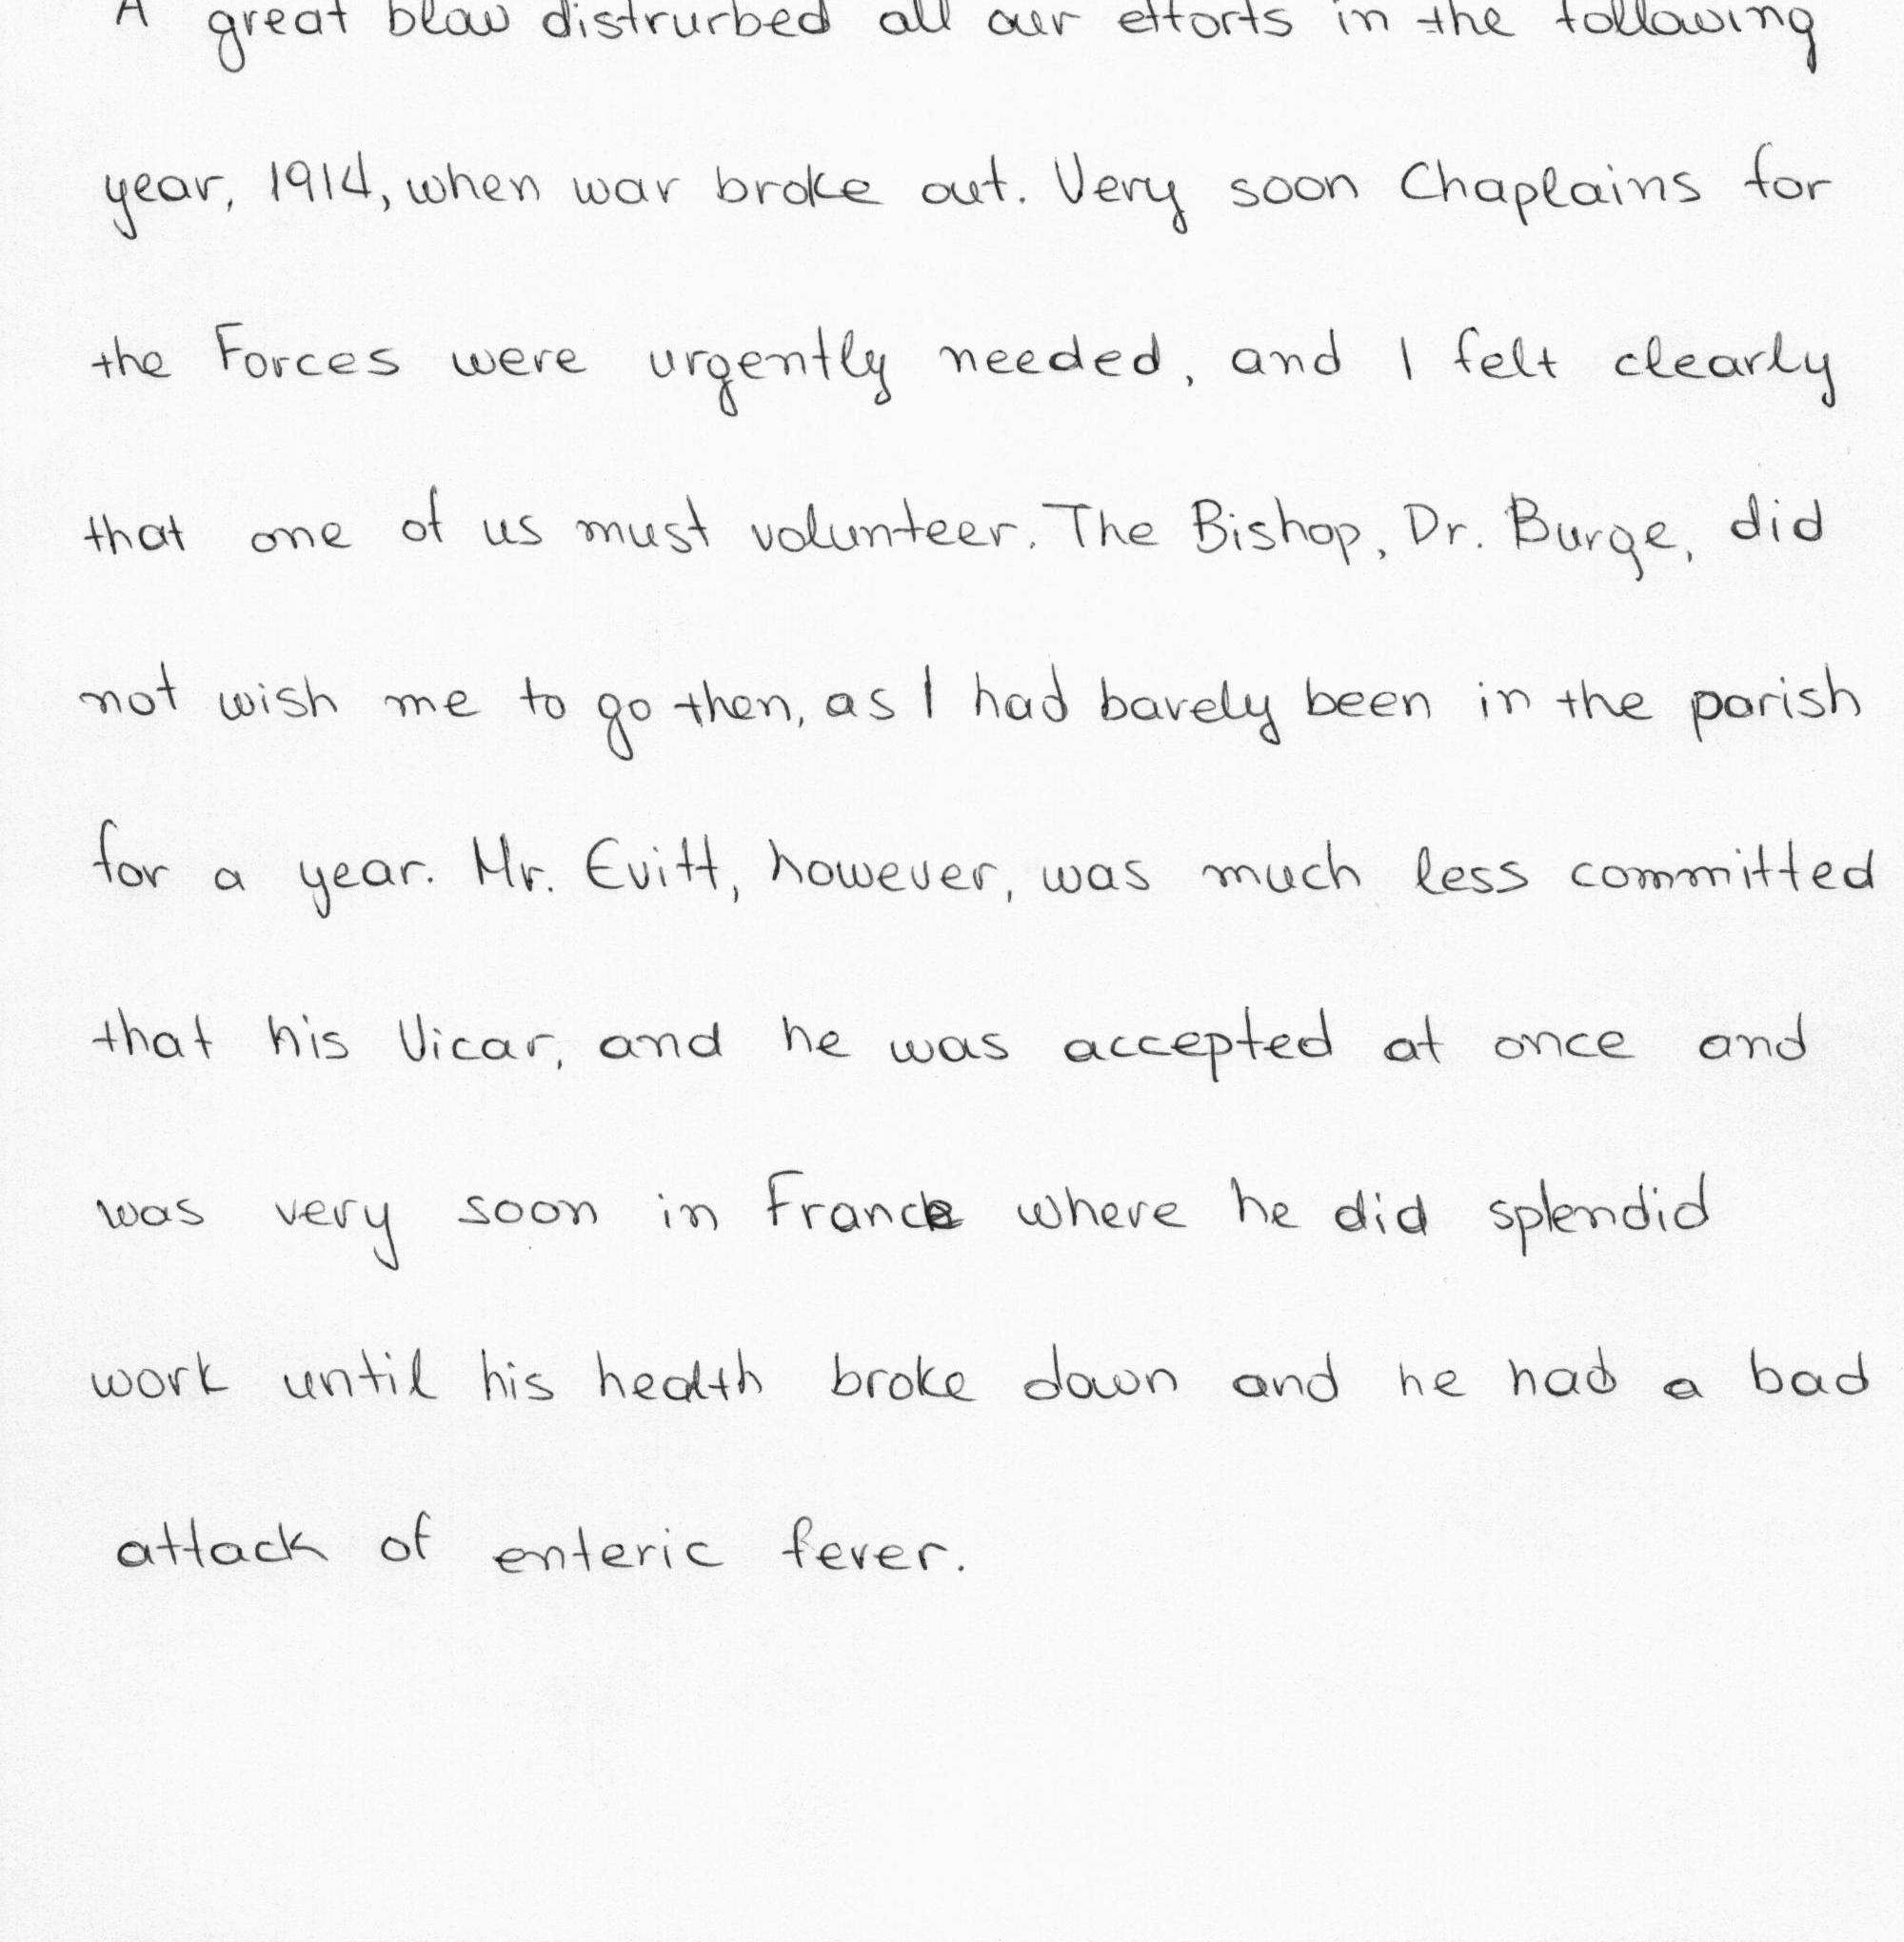 A great blow distrurbed all our efforts in the following
year, 1914, when war broke out. Very soon Chaplains for
the Forces were urgently needed, and I felt clearly
that one of us must volunteer. The Bishop, Dr. Burge, did
not wish me to go then, as I had barely been in the parish
for a year. Mr. Evitt, however, was much less committed
that his Vicar, and he was accepted at once and
was very soon in France where he did splendid
work until his health broke down and he had a bad
attack of enteric fever.